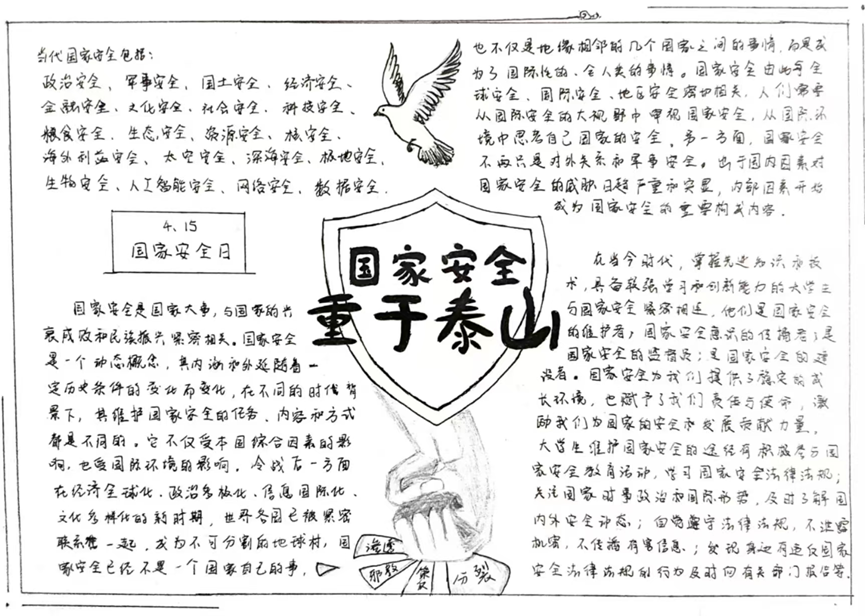 当代国家安全包括：
政治安全、军事安全、国土安全、经济安全、
金融安全、文化安全、社会安全、科技安全、
粮食安全、生态安全、资源安全、核安全、
海外利益安全、太空安全、深海安全、极地安全、
生物安全、人工智能安全、网络安全、数据安全.
4、15
国家安全日
国家安全是国家大事，与国家的兴
衰成败和民族振兴紧密相关。国家安全
是一个动态概念，其内涵和外延随着一
定历史条件的变化而变化，在不同的时代背
景下，其维护国家安全的任务、内容和方式
都是不同的。它不仅受本国综合因素的影
响，也受国际环境的影响。冷战后一方面
在经济全球化、政治多极化、信息国际化、
文化多样化的新时期，世界各国已被紧密
联系在一起，成为不可分割的地球村，国
家安全已经不是一个国家自己的事，
国家安全
重于泰山
渗透
邪教
分裂
也不仅是地缘相邻的几个国家之间的事情，而是成
为了国际性的、全人类的事情。国家安全由此与全
球安全、国际安全、地区安全密切相关，人们需要
从国际安全的大视野中审视国家安全，从国际环
境中思考自己国家的安全。另一方面，国家安全
不再只是对外关系和军事安全。由于国内因素对
国家安全的威胁日趋严重和突显，内部因素开始
成为国家安全的重要构成内容。
在当今时代，掌握先进知识和技
术，具备较强学习和创新能力的大学生
与国家安全紧密相连，他们是国家安全
的维护者；国家安全意识的传播者；是
国家安全的监督员；是国家安全的建
设者。国家安全为我们提供了稳定的成
长环境，也赋予了我们责任与使命，激
励我们为国家的安全和发展贡献力量。
大学生维护国家安全的途径有积极参与国
家安全教育活动，学习国家安全法律法规；
关注国家时事政治和国际形势，及时了解国
内外安全动态；自觉遵守法律法规，不泄露
机密，不传播有害信息；发现身边有违反国家
安全法律法规的行为及时向有关部门报告等.